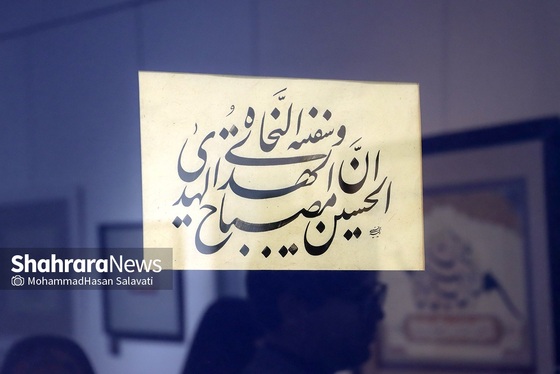 انَّ الحسین مصباح الهدی
الهُدی وسفینه النَّجاة
ShahraraNews
MohammadHasan Salavati